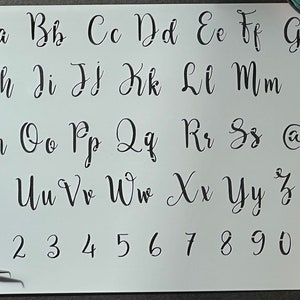 a Bb Cc Dd Ee Ff G
h Ii Jj Kk Ll Mm
n Oo Pp Qq Rr Ss @
Uu Vv Ww Xx Yy Z
2 3 4 5 6 7 8 9 0